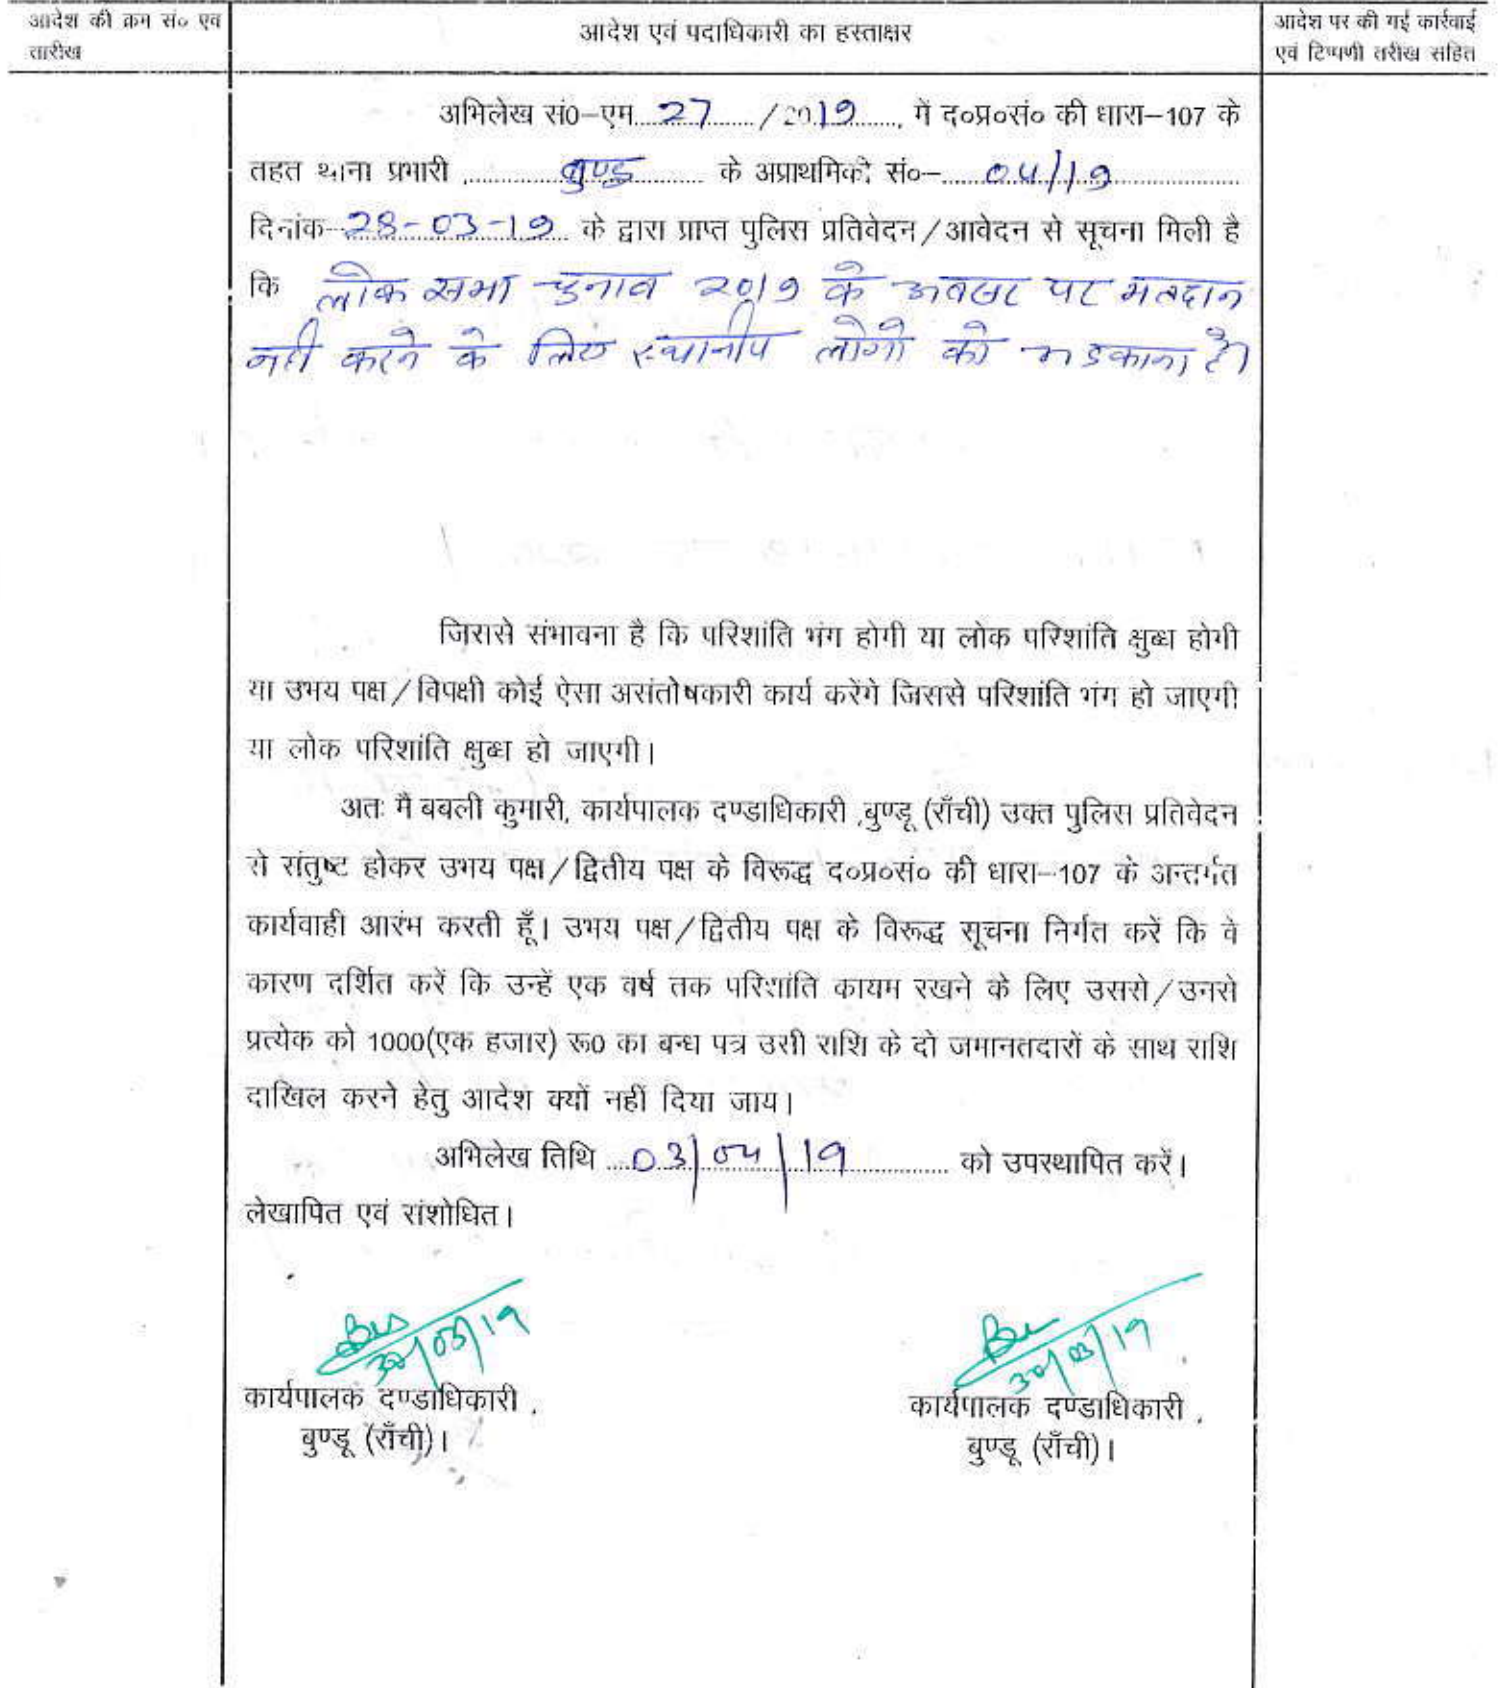 आदेश की क्रम सं० एवं
तारीख
आदेश एवं पदाधिकारी का हस्ताक्षर
आदेश पर की गई कार्रवाई
एवं टिप्पणी तरीख सहित
अभिलेख सं0–एम 27 /2019 में द०प्र०सं० की धारा–107 के
तहत थाना प्रभारी बुण्डू के अप्राथमिकी सं०– 04/19
दिनांक 28-03-19 के द्वारा प्राप्त पुलिस प्रतिवेदन/आवेदन से सूचना मिली है
कि लोक सभा चुनाव 2019 के अवसर पर मतदान
नहीं करने के लिए स्थानीय लोगों को भडकाना है।
जिससे संभावना है कि परिशांति भंग होगी या लोक परिशांति क्षुब्ध होगी
या उभय पक्ष/विपक्षी कोई ऐसा असंतोषकारी कार्य करेंगे जिससे परिशांति भंग हो जाएगी
या लोक परिशांति क्षुब्ध हो जाएगी।
अतः मैं बबली कुमारी, कार्यपालक दण्डाधिकारी ,बुण्डू (राँची) उक्त पुलिस प्रतिवेदन
से संतुष्ट होकर उभय पक्ष/द्वितीय पक्ष के विरूद्ध द०प्र०सं० की धारा–107 के अन्तर्गत
कार्यवाही आरंभ करती हूँ। उभय पक्ष/द्वितीय पक्ष के विरूद्ध सूचना निर्गत करें कि वे
कारण दर्शित करें कि उन्हें एक वर्ष तक परिशांति कायम रखने के लिए उससे/उनसे
प्रत्येक को 1000(एक हजार) रू0 का बन्ध पत्र उसी राशि के दो जमानतदारों के साथ राशि
दाखिल करने हेतु आदेश क्यों नहीं दिया जाय।
अभिलेख तिथि 03/04/19 को उपस्थापित करें।
लेखापित एवं संशोधित।
30/03/19
30/03/19
कार्यपालक दण्डाधिकारी ,
कार्यपालक दण्डाधिकारी ,
बुण्डू (राँची)।
बुण्डू (राँची)।